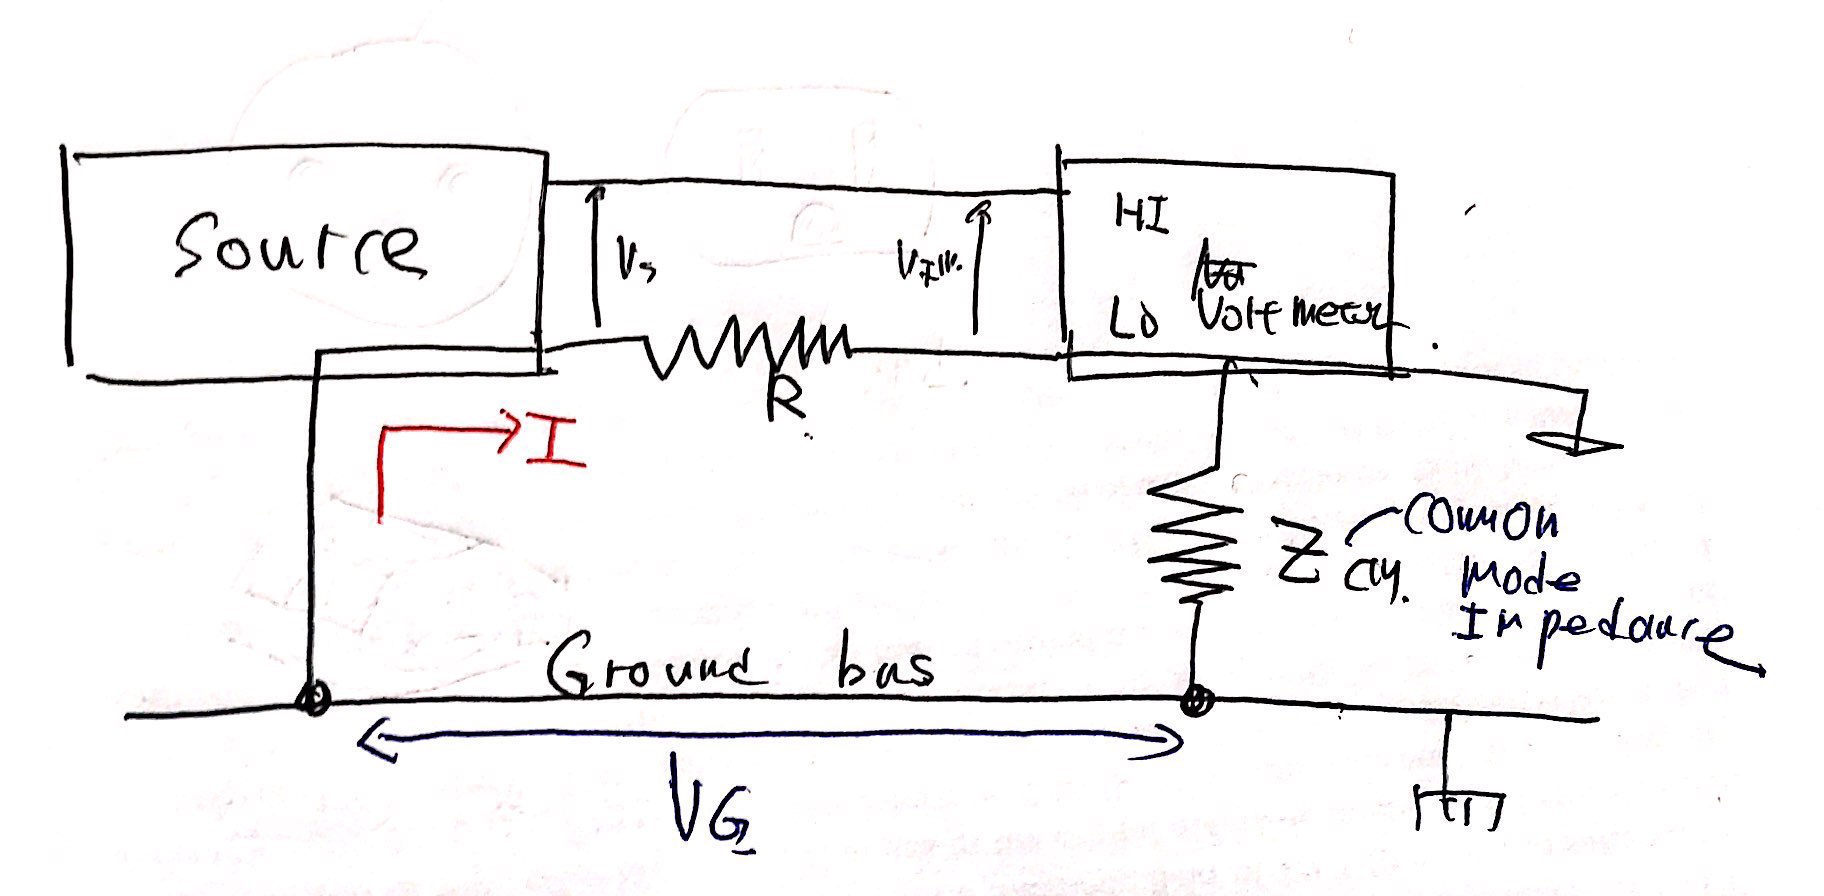 Source
Vs
VIN.
HI
LO
Voltmeter
R
I
Z CM.
Common
Mode
Impedance
Ground bus
VG